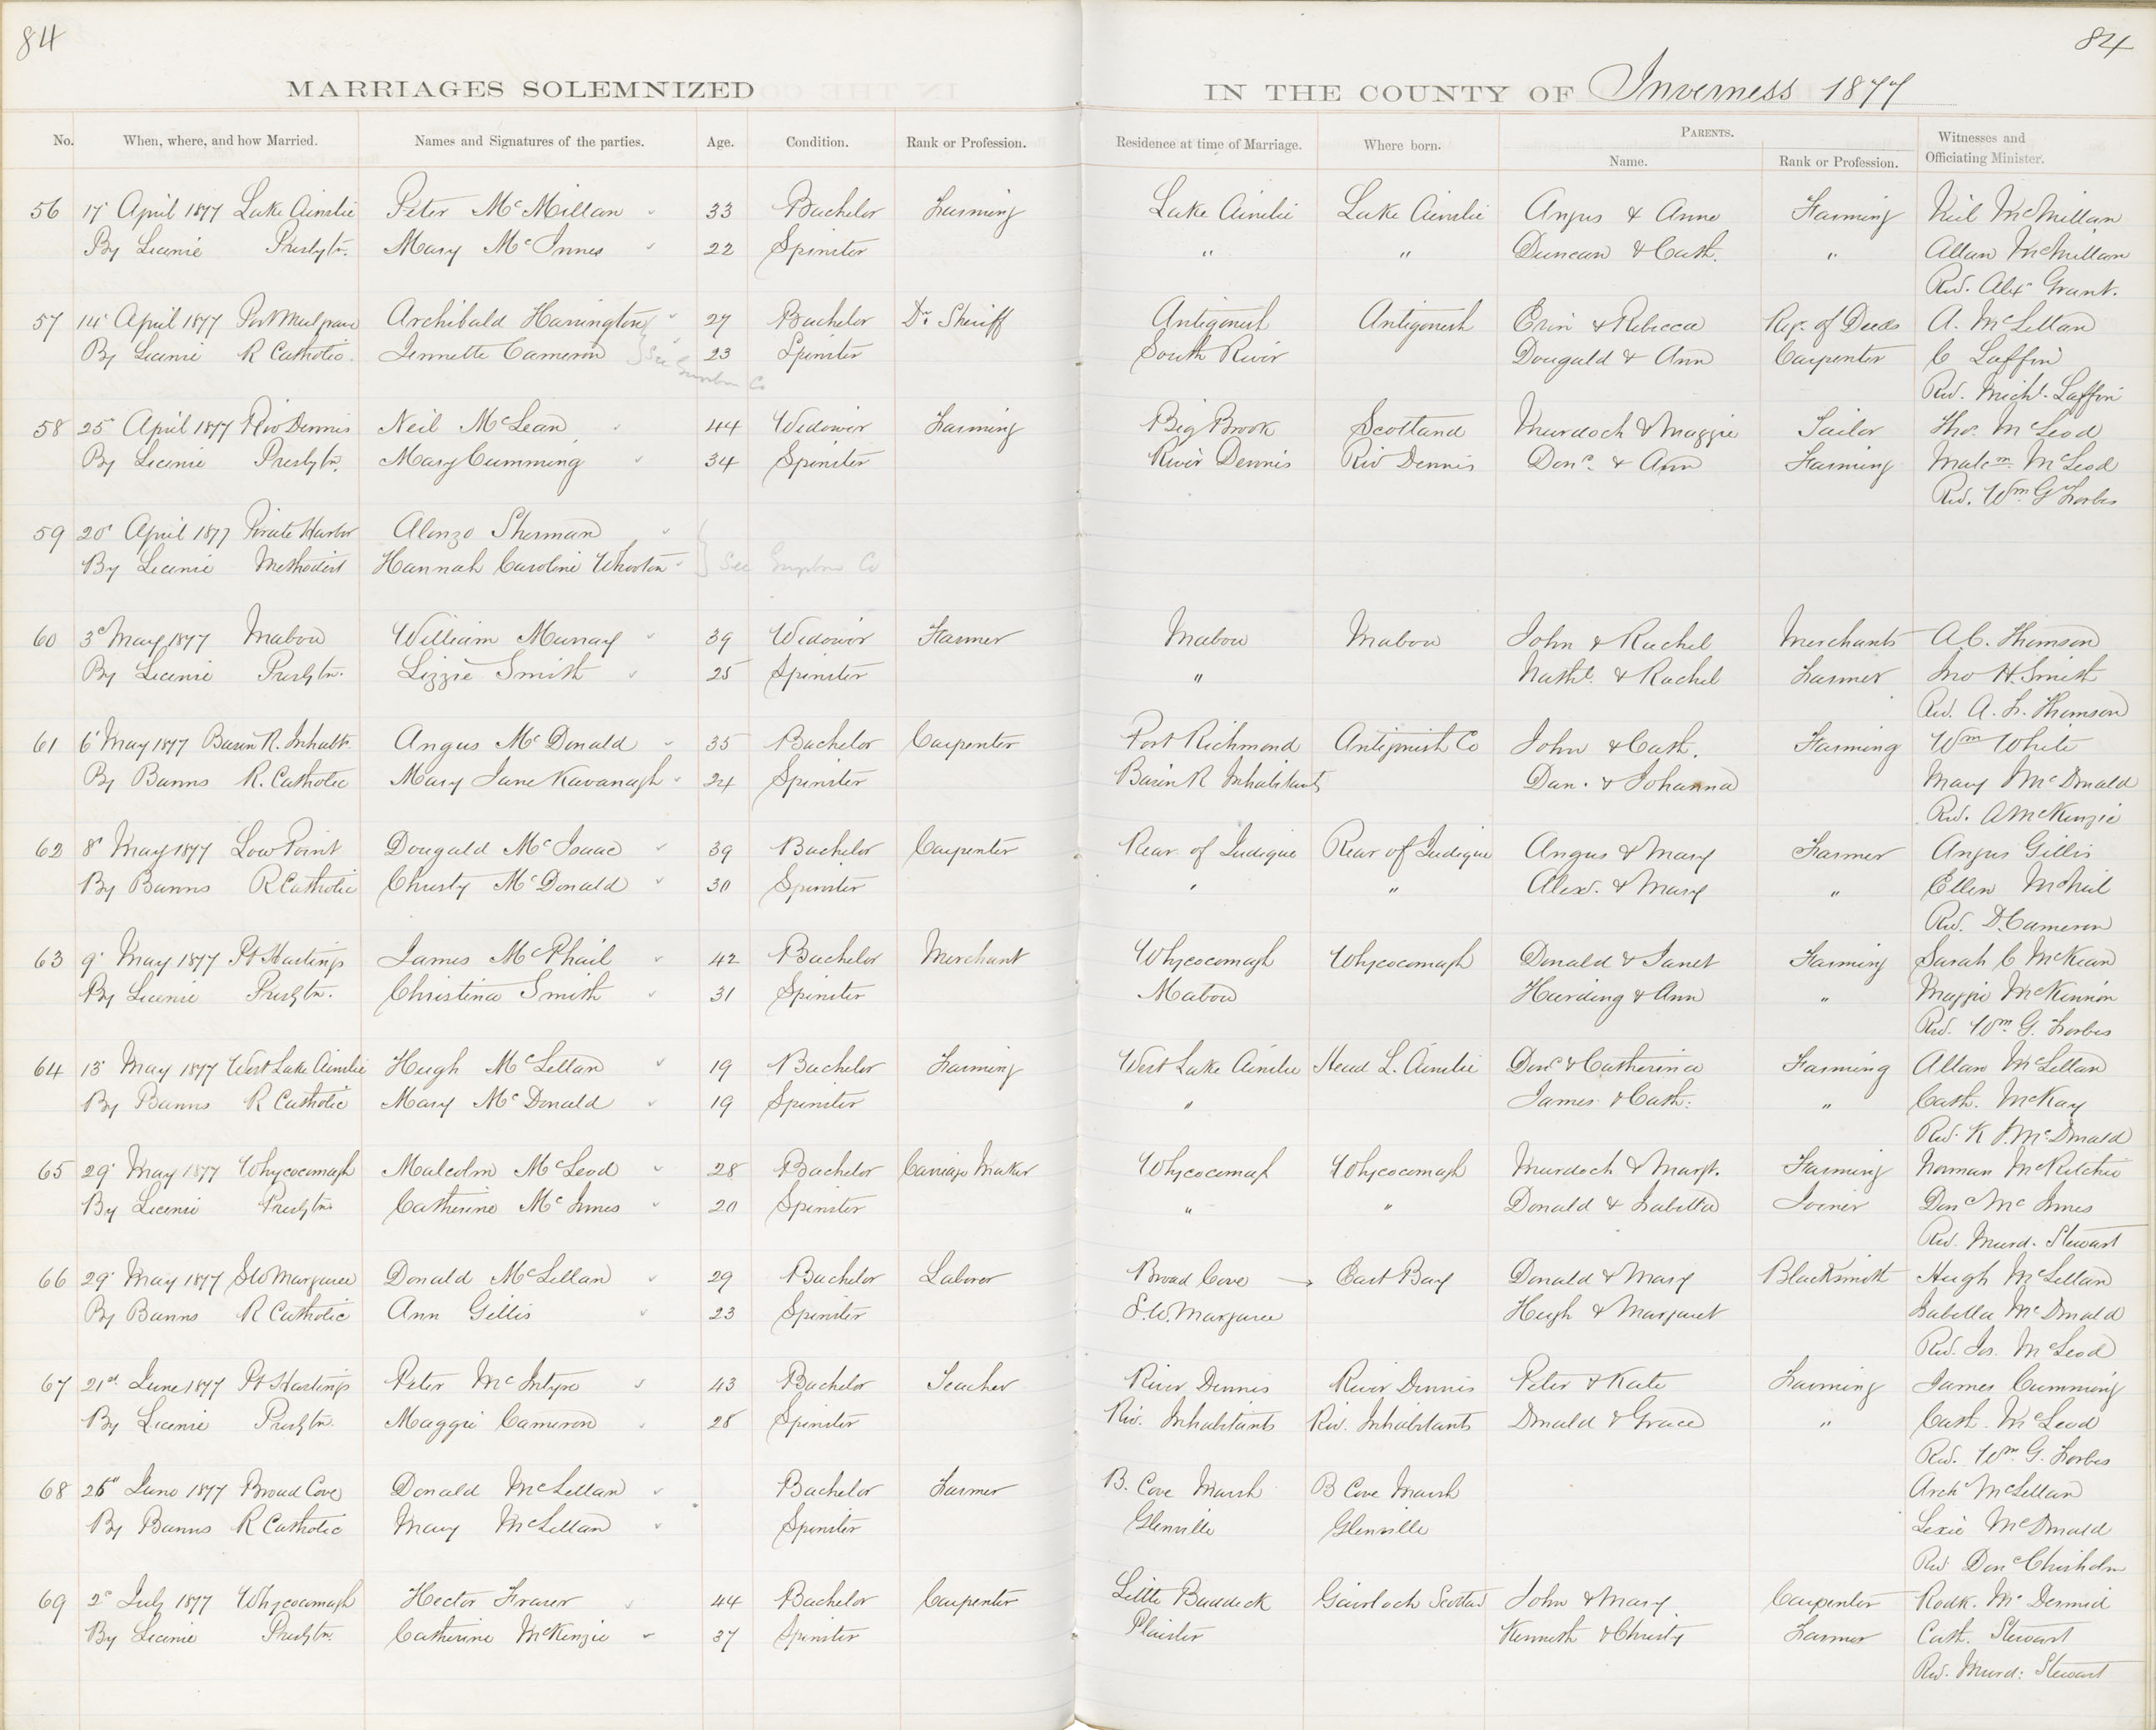 84
84
MARRIAGES SOLEMNIZED IN THE COUNTY OF Inverness 1877
No. When, where, and how Married. Names and Signatures of the parties. Age. Condition. Rank or Profession. Residence at time of Marriage. Where born. PARENTS. Witnesses and
Name. Rank or Profession. Officiating Minister.
56 17 April 1877 Lake Ainslie Peter McMillan 33 Bachelor Farming Lake Ainslie Lake Ainslie Angus & Anne Farming Neil McMillan
By License Presbytn. Mary McInnes 22 Spinster " " Duncan & Cath. " Allan McMillan
Rev. Alexr Grant.
57 14 April 1877 Port Mulgrave Archibald Harrington 27 Bachelor Dr. Sheriff Antigonish Antigonish Erin & Rebecca Reg. of Deeds A. McLellan
By License R Catholic. Jennette Cameron See Guysboro Co 23 Spinster South River Dougald & Ann Carpenter C Laffin
Rev. Michl. Laffin
58 25 April 1877 Riv Dennis Neil McLean 44 Widower Farming Big Brook Scotland Murdoch & Maggie Tailor Thos. McLeod
By License Presbytn. Mary Cumming 34 Spinster River Dennis Riv Dennis Donc. & Ann Farming Malcm. McLeod
Rev. Wm G Forbes
59 20 April 1877 Pirate Harbor Alonzo Sherman
By License Methodist Hannah Caroline Whooton See Guysboro Co
60 3d May 1877 Mabou William Murray 39 Widower Farmer Mabou Mabou John & Rachel Merchants A.C. Thomson
By License Presbytn. Lizzie Smith 25 Spinster " Nathl. & Rachel Farmer Jno H. Smith
Rev. A. F. Thomson
61 6 May 1877 Basin R. Inhabts. Angus McDonald 35 Bachelor Carpenter Port Richmond Antigonish Co John & Cath. Farming Wm White
By Banns R. Catholic Mary Jane Kavanagh 24 Spinster Basin R Inhabitants Dan. & Johanna Mary McDonald
Rev. A McKenzie
62 8 May 1877 Low Point Dougald McIsaac 39 Bachelor Carpenter Rear of Judique Rear of Judique Angus & Mary Farmer Angus Gillis
By Banns R Catholic Christy McDonald 30 Spinster " " Alexr. & Mary " Ellen McNeil
Rev. D. Cameron
63 9 May 1877 Pt Hastings James McPhail 42 Bachelor Merchant Whycocomagh Whycocomagh Donald & Janet Farming Sarah C McKean
By License Presbytn. Christina Smith 31 Spinster Mabou Harding & Ann " Maggie McKinnon
Rev. Wm. G. Forbes
64 15 May 1877 West Lake Ainslie Hugh McLellan 19 Bachelor Farming West Lake Ainslie Head L. Ainslie Donc & Catherine Farming Allan McLellan
By Banns R Catholic Mary McDonald 19 Spinster " James & Cath. " Cath. McKay
Rev. K J. McDonald
65 29 May 1877 Whycocomagh Malcolm McLeod 28 Bachelor Carriage Maker Whycocomagh Whycocomagh Murdoch & Margt. Farming Norman McRitchie
By License Presbytn Catherine McInnes 20 Spinster " " Donald & Isabella Joiner Donc McInnes
Rev. Murd. Stewart
66 29 May 1877 S.W Margaree Donald McLellan 29 Bachelor Laborer Broad Cove East Bay Donald & Mary Blacksmith Hugh McLellan
By Banns R Catholic Ann Gillis 23 Spinster S.W. Margaree Hugh & Margaret Isabella McDonald
Rev. Jos. McLeod
67 21st June 1877 Pt Hastings Peter McIntyre 43 Bachelor Teacher River Dennis River Dennis Peter & Kate Farming James Cumming
By License Presbytn. Maggie Cameron 25 Spinster Riv. Inhabitants Riv. Inhabitants Donald & Grace " Cath. McLeod
Rev. Wm. G. Forbes
68 25 June 1877 Broad Cove Donald McLellan Bachelor Farmer B. Cove Marsh B Cove Marsh Archd McLellan
By Banns R Catholic Mary McLellan Spinster Glenville Glenville Lexie McDonald
Rev Donc Chisholm
69 2d July 1877 Whycocomagh Hector Fraser 44 Bachelor Carpenter Little Baddeck Gairloch Scotland John & Mary Carpenter Rodk. McDermid
By License Presbytn. Catherine McKenzie 37 Spinster Plaister Kenneth & Christy Farmer Cath. Stewart
Rev. Murd. Stewart